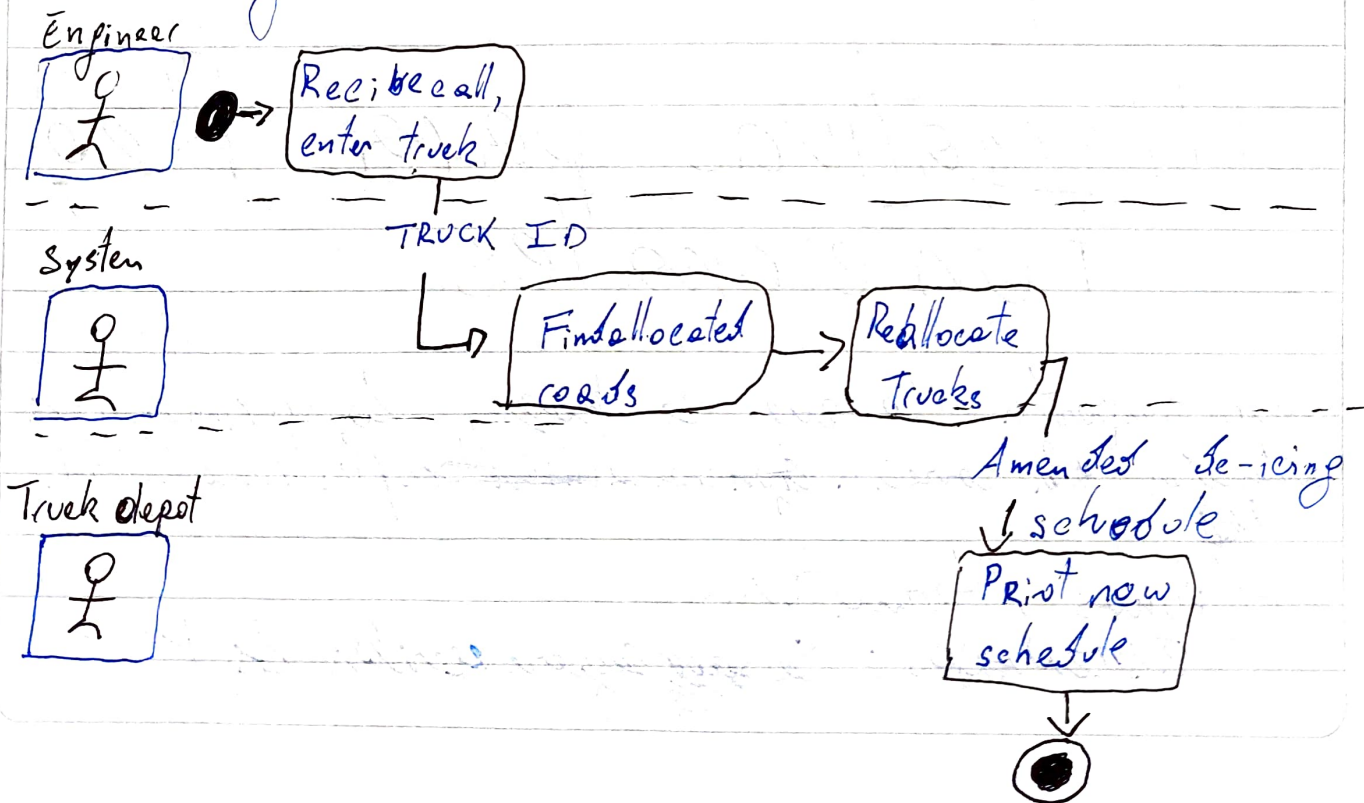 Engineer
Recibe call,
enter truck
TRUCK ID
System
Find allocated
roads
Reallocate
Trucks
Amended de-icing
schedule
Truck depot
PRint new
schedule